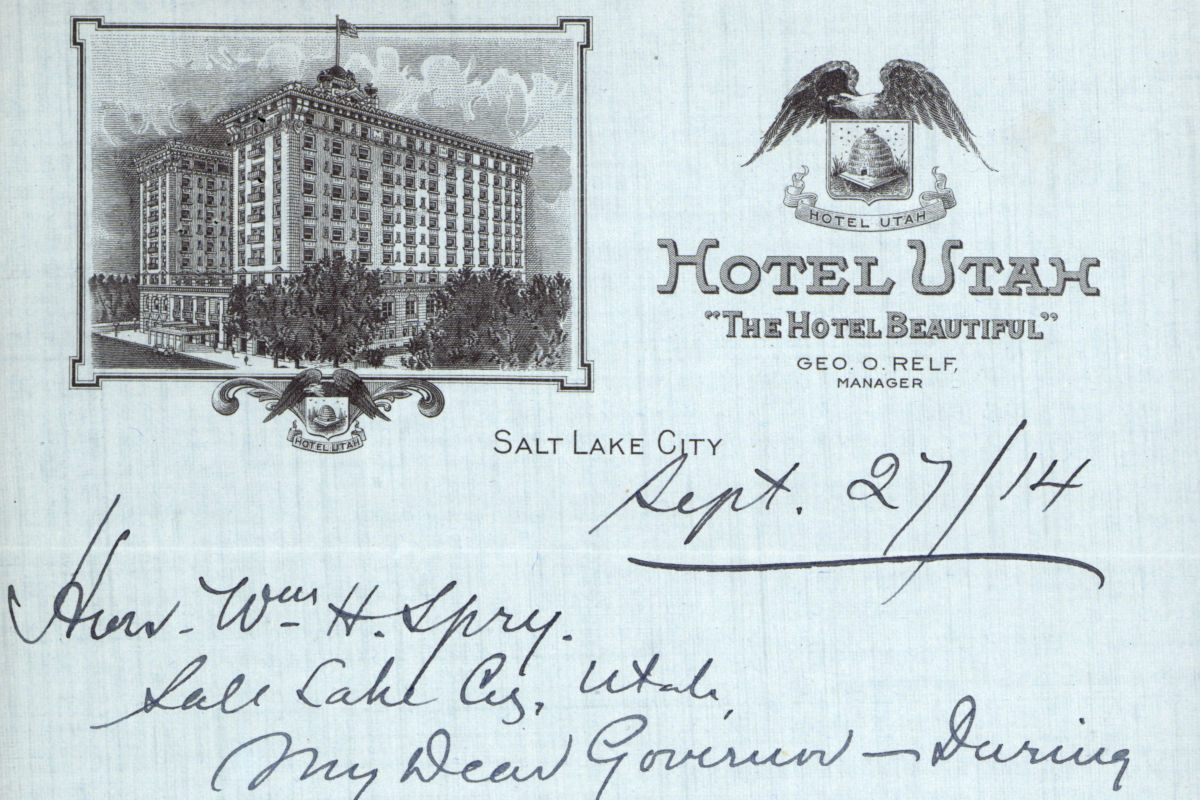 HOTEL UTAH
HOTEL UTAH
"THE HOTEL BEAUTIFUL"
GEO. O. RELF,
MANAGER
HOTEL UTAH
SALT LAKE CITY
Sept. 27/14
Hon. Wm H. Spry.
Salt Lake City, Utah,
My Dear Governor — During